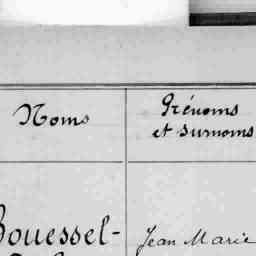 Noms
Prénoms
et surnoms
Bouessel-
Jean Marie